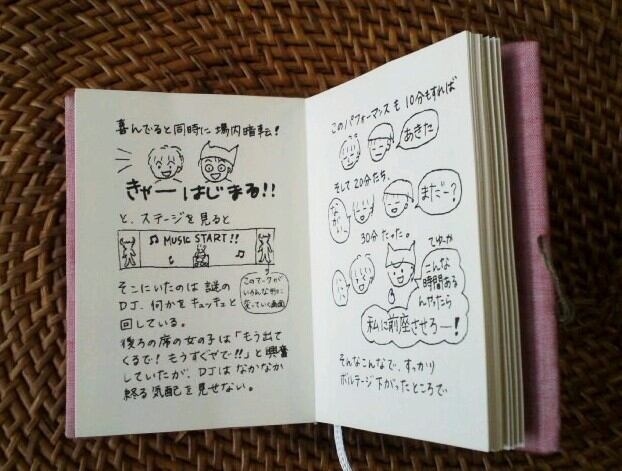 喜んでると同時に場内暗転!
きゃーはじまる!!
と、ステージを見ると
♫ MUSIC START!! ♪
そこにいたのは謎の
DJ。何かをキュッキュと
回している。
このマークが
いろんな形に
変っていく画面
後ろの席の女の子は「もう出て
くるで!もうすぐやで!!」と興奮
していたが、DJはなかなか
終る気配を見せない。
このパフォーマンスも10分もすれば
あきた
そして20分たち、
ながい
まだー?
30分たった。
てゆーか
こんな
時間ある
んやったら
私に前座させろー!
そんなこんなで、すっかり
ボルテージ下がったところで